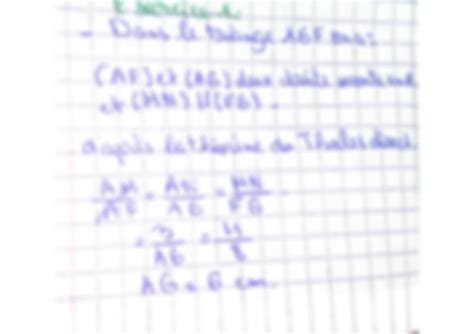 Exercice 1
- Dans le triangle AGF on a:
(AF) et (AG) deux droites sécantes
et (MN) // (FG).
d'après le théorème de Thales donc
AM/AF = AN/AG = MN/FG
= 3/AG = 4/8
AG = 6 cm.